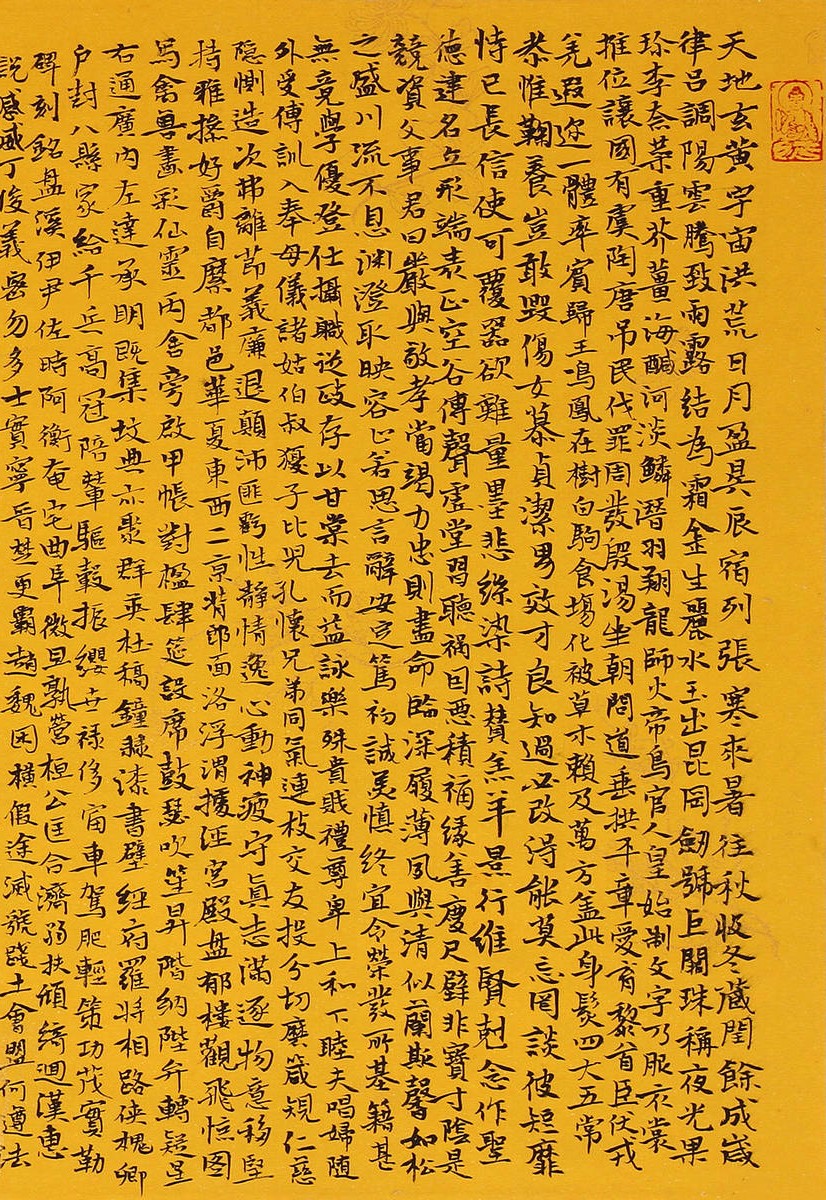 天地玄黃宇宙洪荒日月盈昃辰宿列張寒來暑往秋收冬藏閏餘成歲
律呂調陽雲騰致雨露結為霜金生麗水玉出昆岡劍號巨闕珠稱夜光果
珍李柰菜重芥薑海鹹河淡鱗潛羽翔龍師火帝鳥官人皇始制文字乃服衣裳
推位讓國有虞陶唐吊民伐罪周發殷湯坐朝問道垂拱平章愛育黎首臣伏戎
羌遐邇一體率賓歸王鳴鳳在樹白駒食場化被草木賴及萬方蓋此身髮四大五常
恭惟鞠養豈敢毀傷女慕貞潔男效才良知過必改得能莫忘罔談彼短靡
恃己長信使可覆器欲難量墨悲絲染詩贊羔羊景行維賢剋念作聖
德建名立形端表正空谷傳聲虛堂習聽禍因惡積福緣善慶尺璧非寶寸陰是
競資父事君曰嚴與敬孝當竭力忠則盡命臨深履薄夙興清似蘭斯馨如松
之盛川流不息渊澄取映容止若思言辭安定篤初誠美慎終宜令榮業所基籍甚
無竟學優登仕攝職從政存以甘棠去而益詠樂殊貴賤禮尊卑上和下睦夫唱婦隨
外受傅訓入奉母儀諸姑伯叔猶子比兒孔懷兄弟同氣連枝交友投分切磨箴規仁慈
隱惻造次弗離節義廉退顛沛匪虧性靜情逸心動神疲守真志滿逐物意移堅
持雅操好爵自縻都邑華夏東西二京背邙面洛浮渭據涇宮殿盤郁樓觀飛驚圖
寫禽獸畫彩仙靈丙舍旁啟甲帳對楹肆筵設席鼓瑟吹笙昇階納陛弁轉疑星
右通廣內左達承明既集墳典亦聚群英杜稿鐘隸漆書壁經府羅將相路俠槐卿
戶封八縣家給千兵高冠陪輦驅轂振纓世祿侈富車駕肥輕策功茂實勒
碑刻銘盤溪伊尹佐時阿衡奄宅曲阜微旦孰營桓公匡合濟弱扶傾綺迴漢惠
說感武丁俊義密勿多士實寧晉楚更霸趙魏困橫假途滅虢踐土會盟何遵法